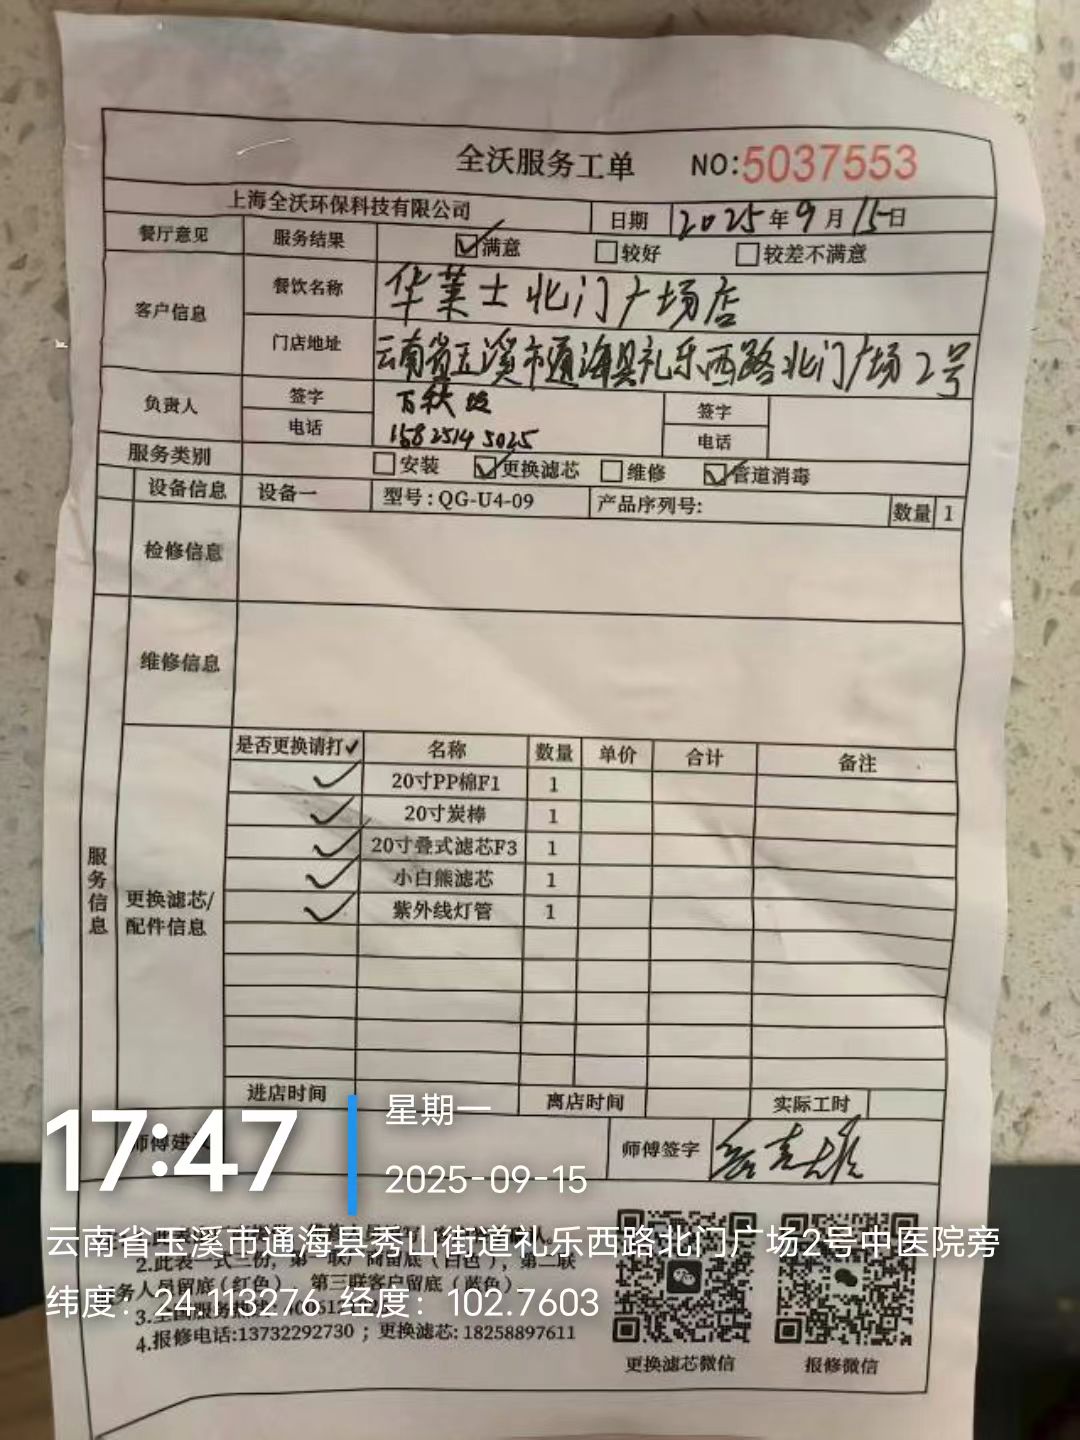 全沃服务工单 NO:5037553
上海全沃环保科技有限公司 日期 2025年9月15日
餐厅意见 服务结果 满意 较好 较差不满意
客户信息 餐饮名称 华莱士北门广场店
门店地址 云南省玉溪市通海县礼乐西路北门广场2号
负责人 签字 签字
电话 15825145025 电话
服务类别 安装 更换滤芯 维修 管道消毒
设备信息 设备一 型号:QG-U4-09 产品序列号: 数量 1
检修信息
维修信息
服务信息
更换滤芯/配件信息
是否更换请打✓ 名称 数量 单价 合计 备注
✓ 20寸PP棉F1 1
✓ 20寸炭棒 1
✓ 20寸叠式滤芯F3 1
✓ 小白熊滤芯 1
✓ 紫外线灯管 1
进店时间 离店时间 实际工时
师傅签字
17:47
星期一
2025-09-15
云南省玉溪市通海县秀山街道礼乐西路北门广场2号中医院旁
纬度：24.113276 经度：102.7603
2.此表一式三份，第一联厂商留底（白色），第二联
服务人员留底（红色），第三联客户留底（蓝色）.
4.报修电话:13732292730；更换滤芯:18258897611
更换滤芯微信 报修微信